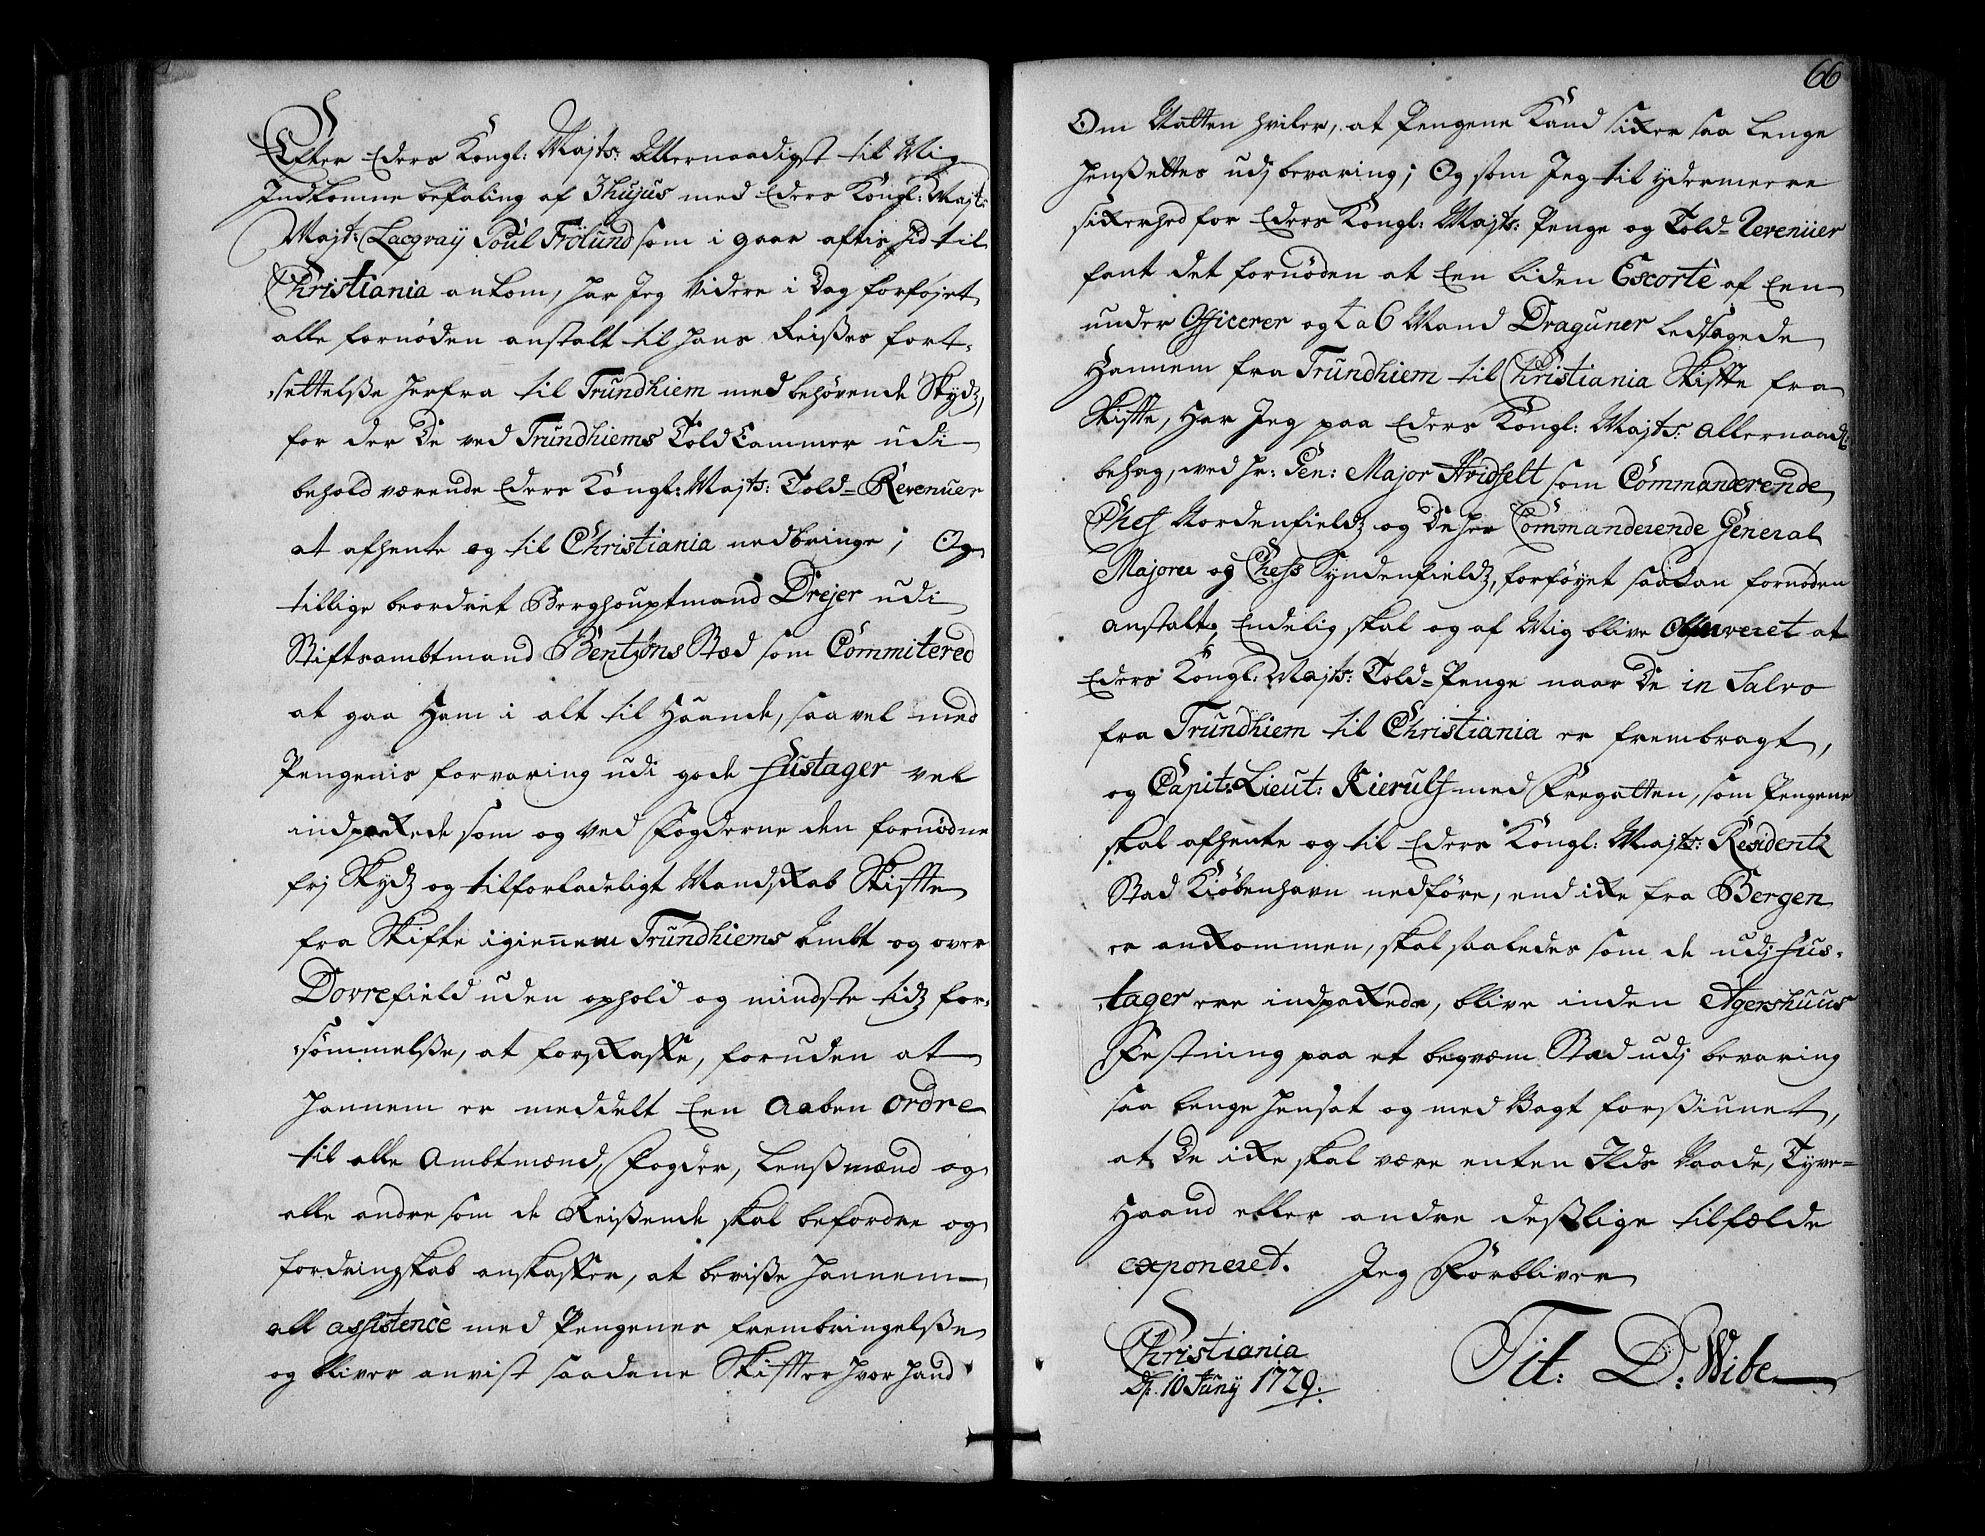 Efter Eders Kongl: Mayts: Allernaadigst til Mig
Indkomne befaling af 3 hujus med Eders Kongl: Mayts:
Mayt: Lacqvaÿ Poul Frölund som i gaar aftis hid til
Christiania ankom, har Jeg Videre i Dag forføjet
alle fornøden anstalt til hans Reißes fort-
settelße herfra til Trundhiem med behøvende Skydz,
for der De ved Trundhiems Told Cammer udi
behold værende Eders Kongl: Mayts: Told=Revenuer
at afhente og til Christiania nedbringe; Og
tillige beordret Berghouptmand Drejer udi
Stiftsambtmand Bentzons Stæd som Commitered
at gaa Ham i alt til Haande, saavel med
Pengenis forvaring udi gode Fustager vel
indpakede som og ved Fogderne den fornødne
frj Skydz og tilforladeligt Mandskab Skiffte
fra Skifte igiennem Trundhiems Ambt og over
Dovrefield uden ophold og mindste tidz for-
sømmelße, at forskaffe, foruden at
hannem er meddelt Een Aaben Ordre
til alle Ambtmænd, Fogder, Lenßmænd og
alle andre som de Reißende skal befordre og
fordringskab anskaffer, at beviße hannem
all assistence med Pengenes frembringelße
og bliver anvist saadane Skiffter hvor hand
66
Om Natten hviler, at Pengene Kand siker saa lenge
henßettes udj bevaring; Og som Jeg til ydermeere
sikerhed for Eders Kongl: Mayts: Penge og Told=Revenüer
fant det fornøden at Een liden Escorte af Een
under Officerer og 4 a 6 Mand Draguner ledsagede
Hannem fra Trundhiem til Christiania Skiffte fra
Skiffte, Har Jeg paa Eders Kongl: Mayts: Allernaad:
behag, med Hr: Gen: Major Hvidfelt som Commanderende
Chef Nordenfieldz og De her Commanderende General
Majorer og Chefs Syndenfieldz, forføyet saadan fornøden
anstalt, Endelig skal og af Mig blive Observeret at
Eders Kongl: Mayts: Told=Penge naar De in Salvo
fra Trundhiem til Christiania er frembragt,
og Capit: Lieut: Kierulf med Fregatten, som Pengene
skal afhente og til Eders Kongl: Mayts: Residentz
Stad Kiøbenhavn nedføre, end ike fra Bergen
er ankommen, skal saaledes som de udj Fus-
tager ere indpakede, blive inden Agershuus
Festning paa et beqvæm Stæd udj bevaring
saa lenge hensat og med Vagt forßiunet,
at De ike skal være enten Ilds Vaade, Tyve=
Haand eller andre deßlige tilfælde
exponeret. Jeg Forbliver
Christiania
D: 10 Junÿ 1729.
Tit: D: Wibe